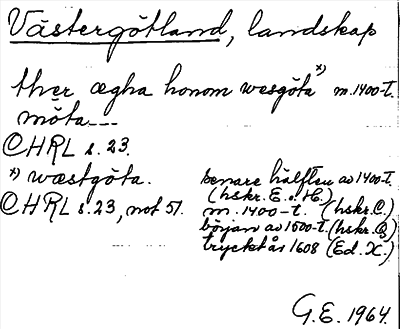 Västergötland, landskap
ther ægha honom wesgöta *) m. 1400-t.
möta ---
CHRL s. 23.
*) wæstgöta. senare hälften av 1400-t.
(hskr. E. o. H.)
CHRL s. 23, not 51. m. 1400-t. (hskr. C.)
början av 1500-t. (hskr. B)
tryckt år 1608 (Ed. X.)
G.E. 1964.